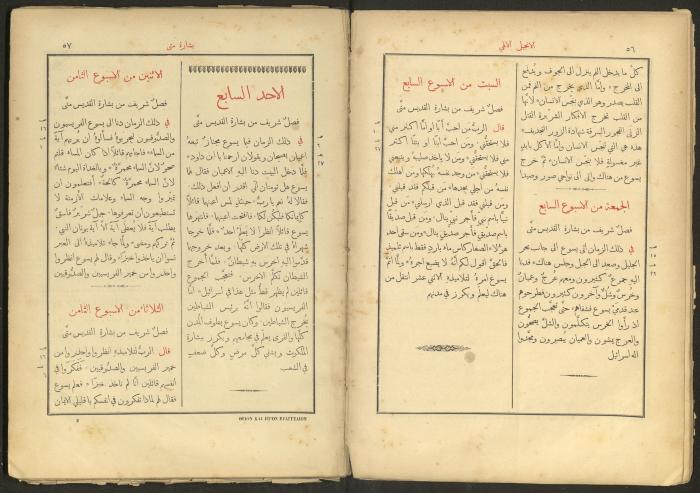 ٥٦
الانجيل الالهي
كلّ ما يدخل الفم ينزل الى الجوف ويُدفع
الى المخرج ٭ وامّا الذي يخرج من الفم فمن
القلب يصدر وهو الذي ينجّس الانسان ٭ لانها
من القلب تخرج الافكار الشريرة القتل
الزنى الفجور السرقة شهادة الزور التجديف ٭
هذه هي التي تنجّس الانسان وامّا الاكل بايدٍ
غير مغسولة فلا ينجّس الانسان ٭ ثمّ خرج
يسوع من هناك واتى الى نواحي صور وصيدا
الجمعة من الاسبوع السابع
فصل شريف من بشارة القديس متّى
في ذلك الزمان اتى يسوع الى جانب بحر
الجليل وصعد الى الجبل وجلس هناك ٭ فدنا
اليه جموع كثيرون ومعهم عرج وعميان
وخرس وشلّ وآخرون كثيرون فطرحوهم
عند قدمي يسوع فشفاهم ٭ حتّى تعجّب الجموع
اذ رأوا الخرس يتكلّمون والشلّ يصحّون
والعرج يمشون والعميان يبصرون ومجّدوا
اله اسرائيل
السبت من الاسبوع السابع
فصل شريف من بشارة القديس متّى
قال الربّ من احبّ اباً او امّاً اكثر مني
فلا يستحقّني ٭ ومن احبّ ابناً او بنتاً اكثر مني
فلا يستحقّني ٭ ومن لا يأخذ صليبه ويتبعني
فلا يستحقّني ٭ من وجد نفسه يهلكها ومن اهلك
نفسه من اجلي يجدها ٭ من قبلكم فقد قبلني
ومن قبلني فقد قبل الذي ارسلني ٭ من قبل
نبيّاً باسم نبي فأجر نبي ينال ٭ ومن قبل صدّيقاً
باسم صدّيق فأجر صدّيق ينال ٭ ومن سقى احد
هؤلاء الصغار كاس ماء بارد فقط باسم تلميذ
فالحقّ اقول لكم انّه لا يضيع اجره ٭ ولمّا اتمّ
يسوع امره لتلاميذه الاثني عشر انتقل من
هناك ليعلّم ويكرز في مدنهم
بشارة متّى
٥٧
الاحد السابع
فصل شريف من بشارة القديس متّى
في ذلك الزمان فيما يسوع مجتاز تبعه
اعميان يصيحان ويقولان ارحمنا يا ابن داود ٭
فلمّا دخل البيت دنا اليه الاعميان فقال لهما
يسوع هل تومنان اني اقدر ان افعل ذلك ٭
فقالا له نعم يا ربّ ٭ حينئذٍ لمس اعينهما قائلاً
كإيمانكما فليكن لكما ٭ فانفتحت اعينهما ٭ فانتهرهما
يسوع قائلاً انظرا لا يعلم احد ٭ فلمّا خرجا
شهراه في تلك الارض كلّها ٭ وبعد خروجهما
قدّموا اليه اخرس به شيطان ٭ فلمّا أخرج
الشيطان تكلّم الاخرس ٭ فتعجّب الجموع
قائلين لم يظهر قطّ مثل هذا في اسرائيل ٭ امّا
الفريسيون فقالوا انّه برئيس الشياطين
يخرج الشياطين ٭ وكان يسوع يطوف المدن
كلّها والقرى يعلّم في مجامعهم ويكرز ببشارة
الملكوت ويشفي كلّ مرض وكلّ ضعف
في الشعب
الاثنين من الاسبوع الثامن
فصل شريف من بشارة القديس متّى
في ذلك الزمان دنا الى يسوع الفريسيون
والصدّوقيون ليجرّبوه فسألوه ان يريهم آية
من السماء ٭ فاجابهم قائلاً اذا كان المساء قلتم
صحو لانّ السماء محمرّة ٭ وبالغداة اليوم شتاء
لانّ السماء محمرّة كالحة ٭ أفتعلمون ان
تميّزوا وجه السماء وعلامات الازمنة لا
تستطيعون ان تعرفوها ٭ جيل شرير فاسق
يطلب آية فلا يعطى آية الّا آية يونان النبي ٭
ثمّ تركهم ومضى ٭ ولمّا جاء تلاميذه الى العبر
نسوا ان ياخذوا خبزاً ٭ وقال لهم يسوع انظروا
واحذروا من خمير الفريسيين والصدّوقيين
الثلاثا من الاسبوع الثامن
فصل شريف من بشارة القديس متّى
قال الربّ لتلاميذه انظروا واحذروا من
خمير الفريسيين والصدّوقيين ٭ ففكّروا في
انفسهم قائلين انّا لم ناخذ خبزاً ٭ فعلم يسوع
فقال لهم لماذا تفكّرون في انفسكم يا قليلي الايمان
ΘΕΙΟΝ ΚΑΙ ΙΕΡΟΝ ΕΥΑΓΓΕΛΙΟΝ
8